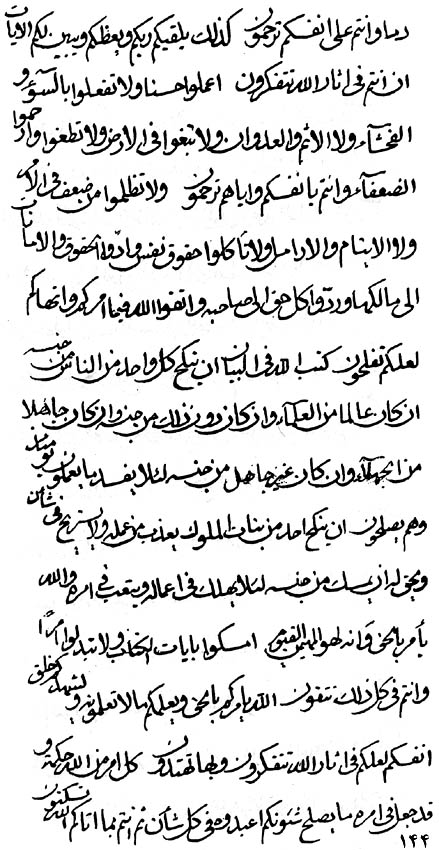 دما وانتم على انفسكم ترحمون كذلك يلقيكم ربكم ويعظكم ويبين لكم الايات
ان انتم فى اثار الله تتفكرون اعملوا حسنا ولا تفعلوا بالسوء و
الفحشاء ولا الاثم والعدوان ولا تبغوا فى الارض ولا تطغوا وارحموا
الضعفاء وانتم بانفسكم واياهم ترحمون ولا تظلموا من ضعف فى الامر
ولا الايتام والارامل ولا تاكلوا حقوق نفس وادوا الحقوق والامانات
الى مالكها وردوا كل حق الى صاحبه واتقوا الله فيما امركم وانهاكم
لعلكم تفلحون كتب الله فى البيان ان ينكح كل واحد من الناس من جنسه
ان كان عالما من العلماء وان كان دون ذلك من جنسه وان كان جاهلا
من الجهلاء وان كان غير جاهل من جنسه لئلا يفسد ما يعملون
وهم يصلحون ان ينكح احد من بنات الملوك يعذب من عمله ولا يستريح فى شان
ويحق له ان يمسك من جنسه لئلا يهلك فى اعماله ويتعب فى امره والله
يأمر بالحق وانه لهو المهيمن القيوم امسكوا بايات الكتاب ولا تبدلوا امرا
وانتم فى كل ذلك تتقون الله يامركم بالحق ويعلمكم ما لا تعلمون و
انفسكم لعلكم فى اثار الله تتفكرون وبها تهتدون كل امر من الله حكمة و
قد جعل فى امره ما يصلح شئونكم اعبدوه فى كل شأن ثم انتم بما اتاكم الله تسكنون
١٤٤